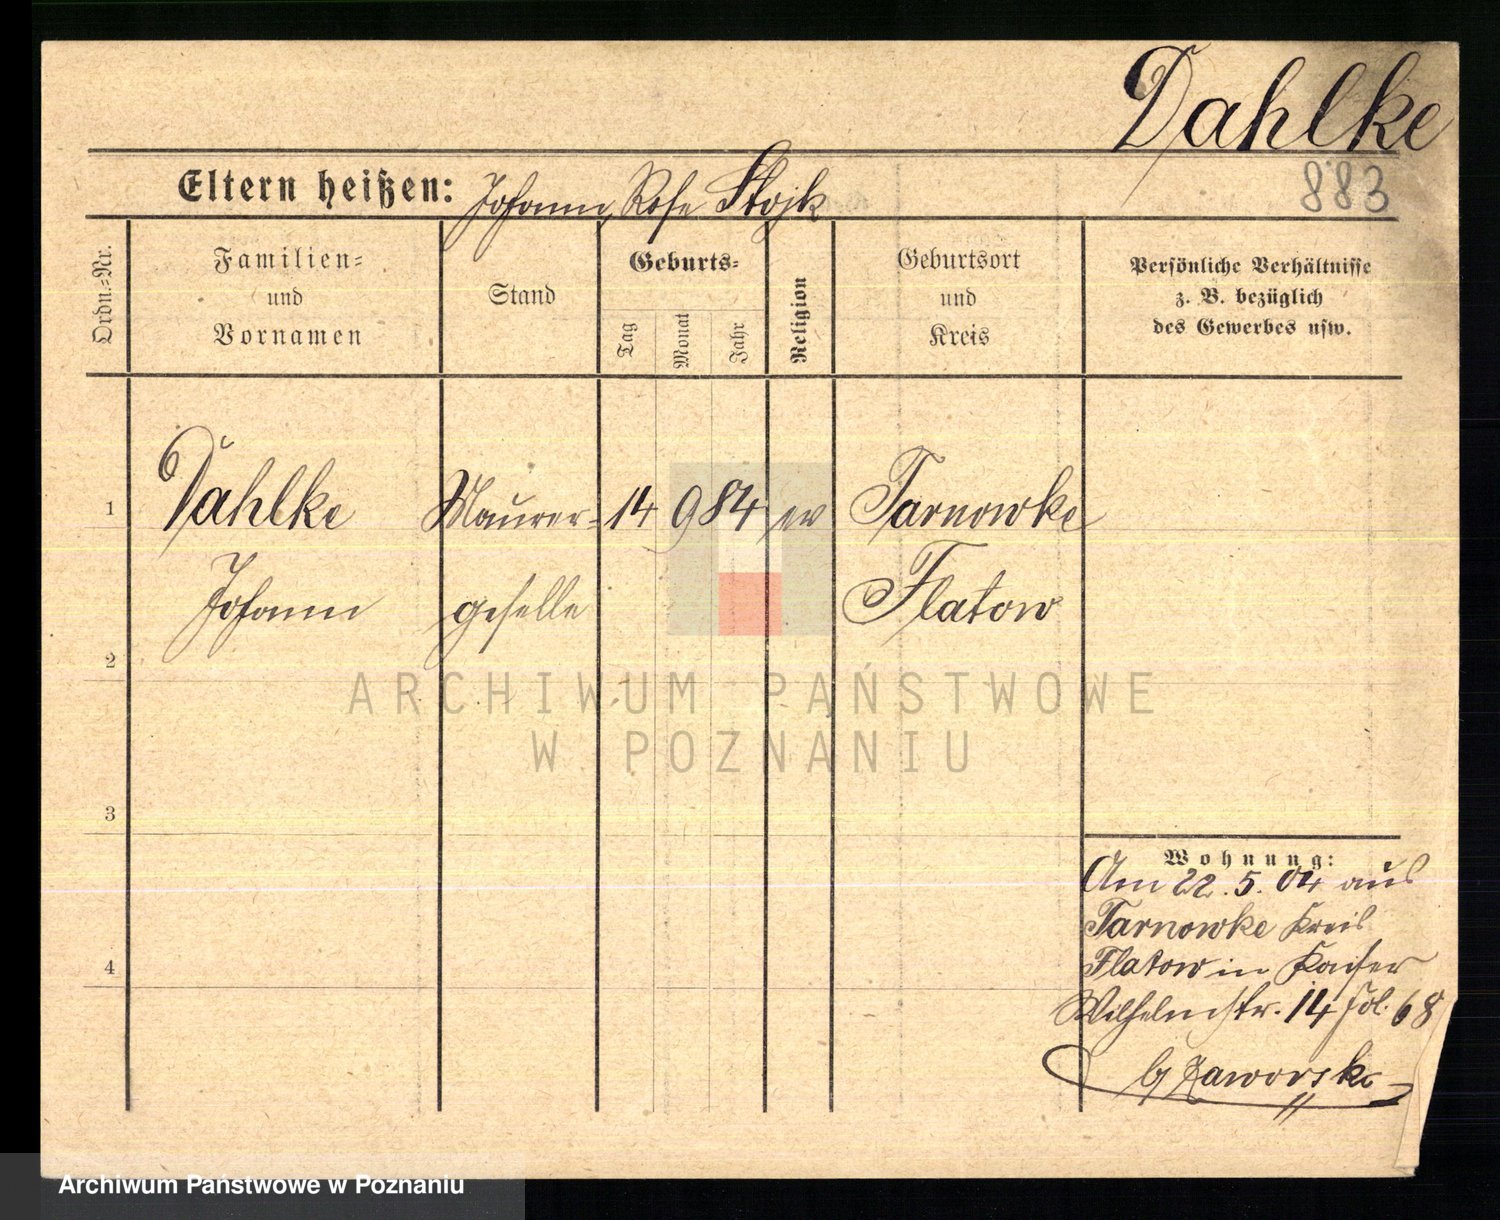 Dahlke
883
Eltern heißen: Johann, Rose Stojk
Ordn.-Nr.
Familien-
und
Vornamen
Stand
Geburts-
Tag
Monat
Jahr
Religion
Geburtsort
und
Kreis
Persönliche Verhältnisse
z. B. bezüglich
des Gewerbes usw.
1 Dahlke Maurer- 14 9 84 ev Tarnowke
Johann geselle Flatow
2
ARCHIWUM PAŃSTWOWE
W POZNANIU
3
Wohnung:
Am 22.5.04 aus
Tarnowke Kreis
Flatow in Kaiser
4
Wilhelmstr. 14 fol. 68
b/
Archiwum Państwowe w Poznaniu